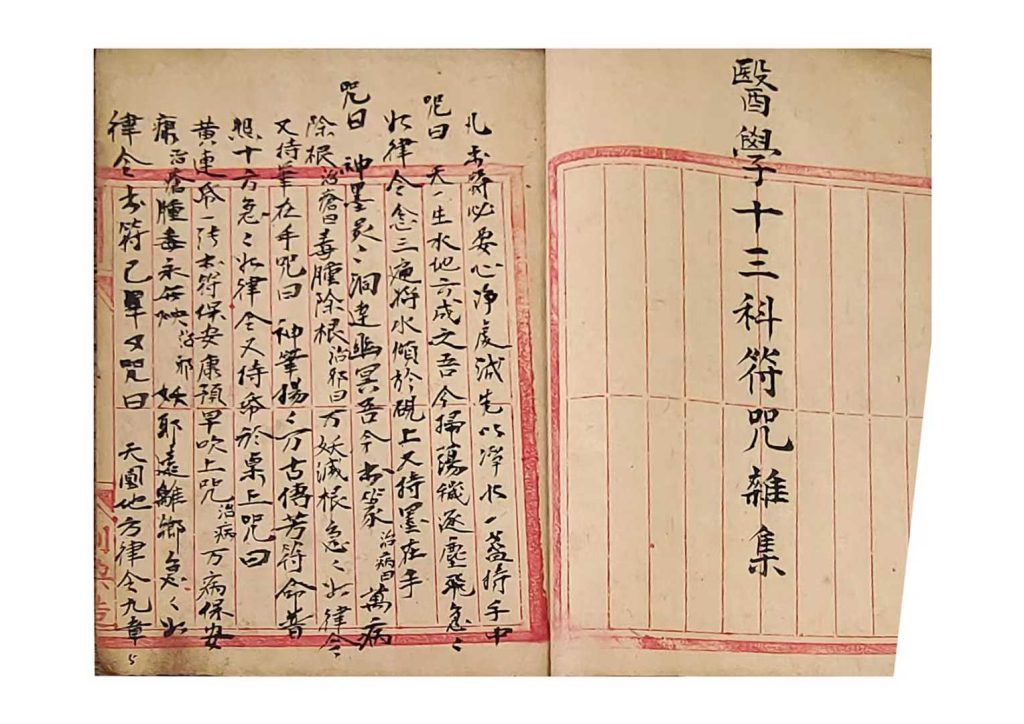 醫學十三科符咒雜集
凡书符必要心净虔诚先以淨水一盏持手中
咒曰 天一生水地六成之吾今掃蕩穢逐塵飛急〻
如律令念三遍将水傾於硯上又持墨在手
咒曰 神墨灵〻洞達幽冥吾今书篆治病曰萬病
除根治瘡曰毒腫除根治邪曰万妖滅根急〻如律令
又持筆在手咒曰 神筆揚〻万古傳芳符命普
照十方急〻如律令又侍帋於桌上咒曰
黄連帋一张书符保安康預早吹上咒治病万病保安
康治瘡腫毒永無殃治邪妖邪遠離鄉急〻如
律令书符已畢又咒曰 天圓地方律令九章
5